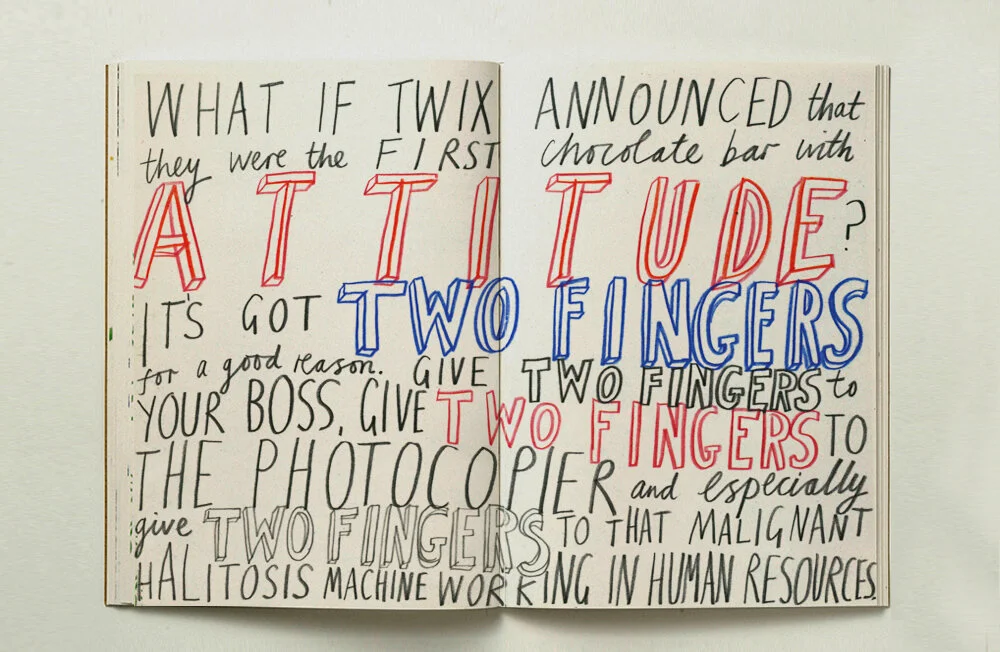 WHAT IF TWIX ANNOUNCED that
they were the FIRST chocolate bar with
ATTITUDE?
IT'S GOT TWO FINGERS
for a good reason. GIVE TWO FINGERS to
YOUR BOSS, GIVE TWO FINGERS TO
THE PHOTOCOPIER and especially
give TWO FINGERS TO THAT MALIGNANT
HALITOSIS MACHINE WORKING IN HUMAN RESOURCES.